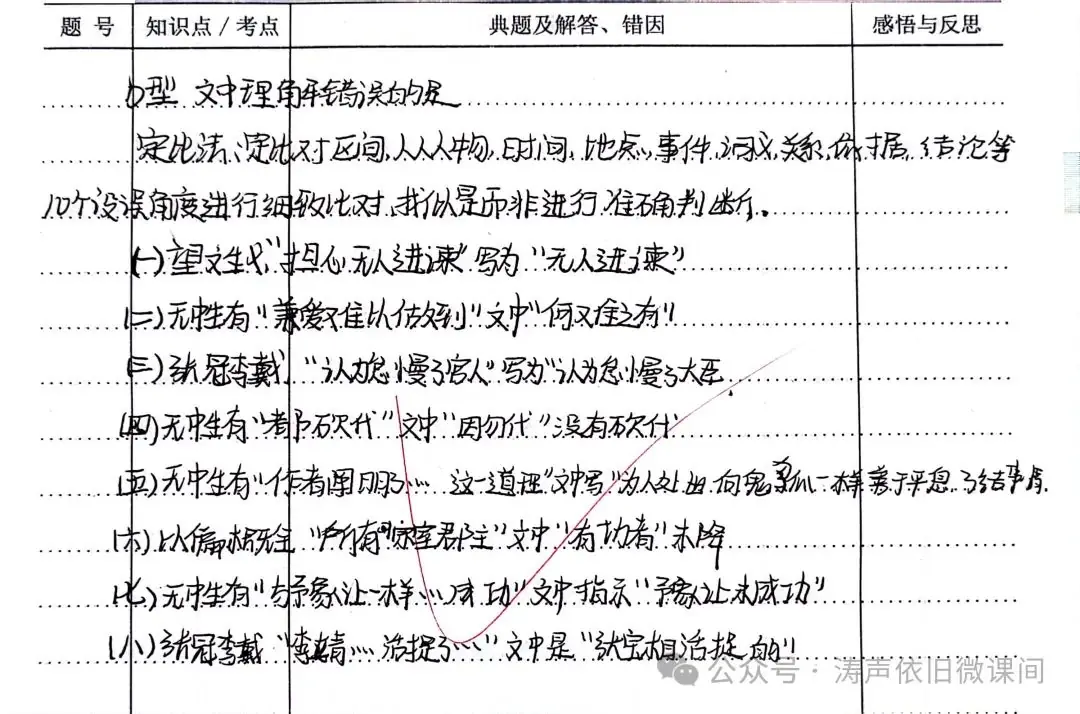 题 号 知识点 / 考点 典题及解答、错因 感悟与反思
D型 文中理解错误的是
定比法:定比对区间,从人物,时间,地点,事件,词义,关系,依据,结论等
10个设误角度进行细致比对,找似是而非进行准确判断。
(一)望文生义"担心无人进谏"写为"无人进谏"
(二)无中生有"兼爱难以做到"文中"何难之有"
(三)张冠李戴,"认为怠慢了宫人"写为"认为怠慢了大臣
(四)无中生有"砍伐"文中"因勿伐"没有砍伐
(五)无中生有"作者阐明了…… 这一道理"文中写"为人处世 向 一样善于平息 了结事
(六)以偏概全 "所有宗室郡主"文中"有功者"未降
(七)无中生有"与豫让一样……成功"文中指示"豫让未成功"
(八)张冠李戴"李靖……活捉了……"文中是"张宝相活捉的"
公众号 · 涛声依旧微课间